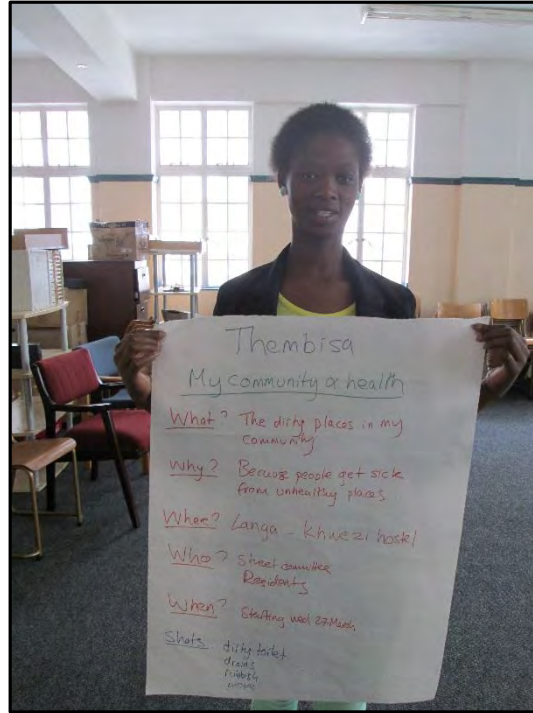 Thembisa
My community & health
What? The dirty places in my
community
Why? Because people get sick
from unhealthy places
Where? Langa - Khwezi hostel
Who? Street committee
Residents
When? Starting wed 27 March
Shots dirty toilet
drains
rubbish